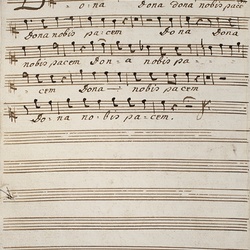 Dona Dona dona nobis pacem
Dona nobis pacem Dona Dona
nobis pacem Dona nobis pa-
cem Dona nobis pacem
Dona nobis pacem.